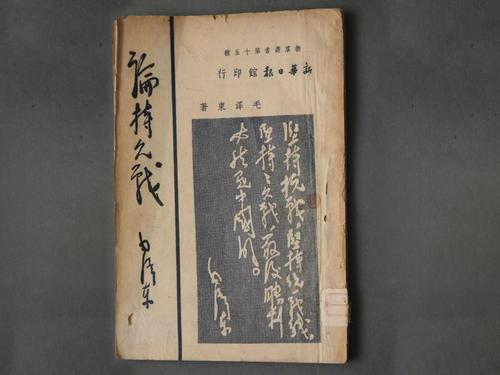 論持久戰
毛澤東
新羣叢書第十五種
新華日報館印行
毛澤東著
堅持抗戰,堅持統一戰線,
堅持持久戰,最後勝利
必然是中國的。
毛澤東